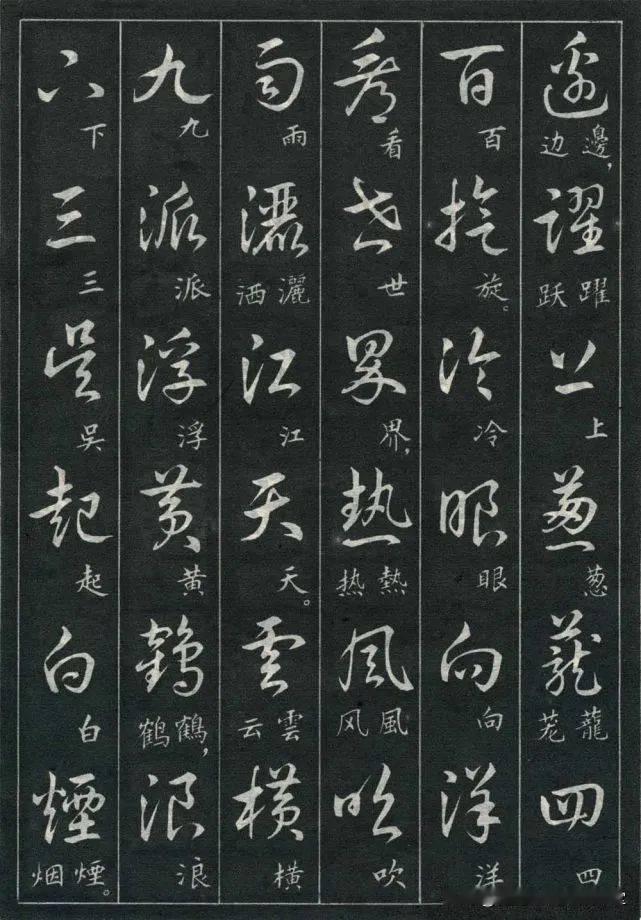 邊 邊，边 躍 躍跃 上 上 葱 葱 蘢 蘢茏 四 四
百 百 旋 旋。 冷 冷 眼 眼 向 向 洋 洋
看 看 世 世 界 界， 熱 熱热 風 風风 吹 吹
雨 雨 灑 灑洒 江 江 天 天。 雲 雲云 横 横
九 九 派 派 浮 浮 黄 黄 鶴 鶴，鹤 浪 浪
下 下 三 三 吴 吴 起 起 白 白 煙 煙。烟